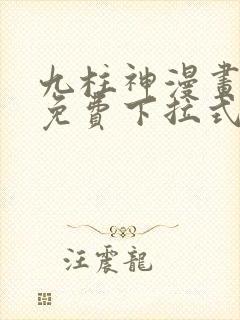 九柱神漫畫
免費下拉式
汪震龍